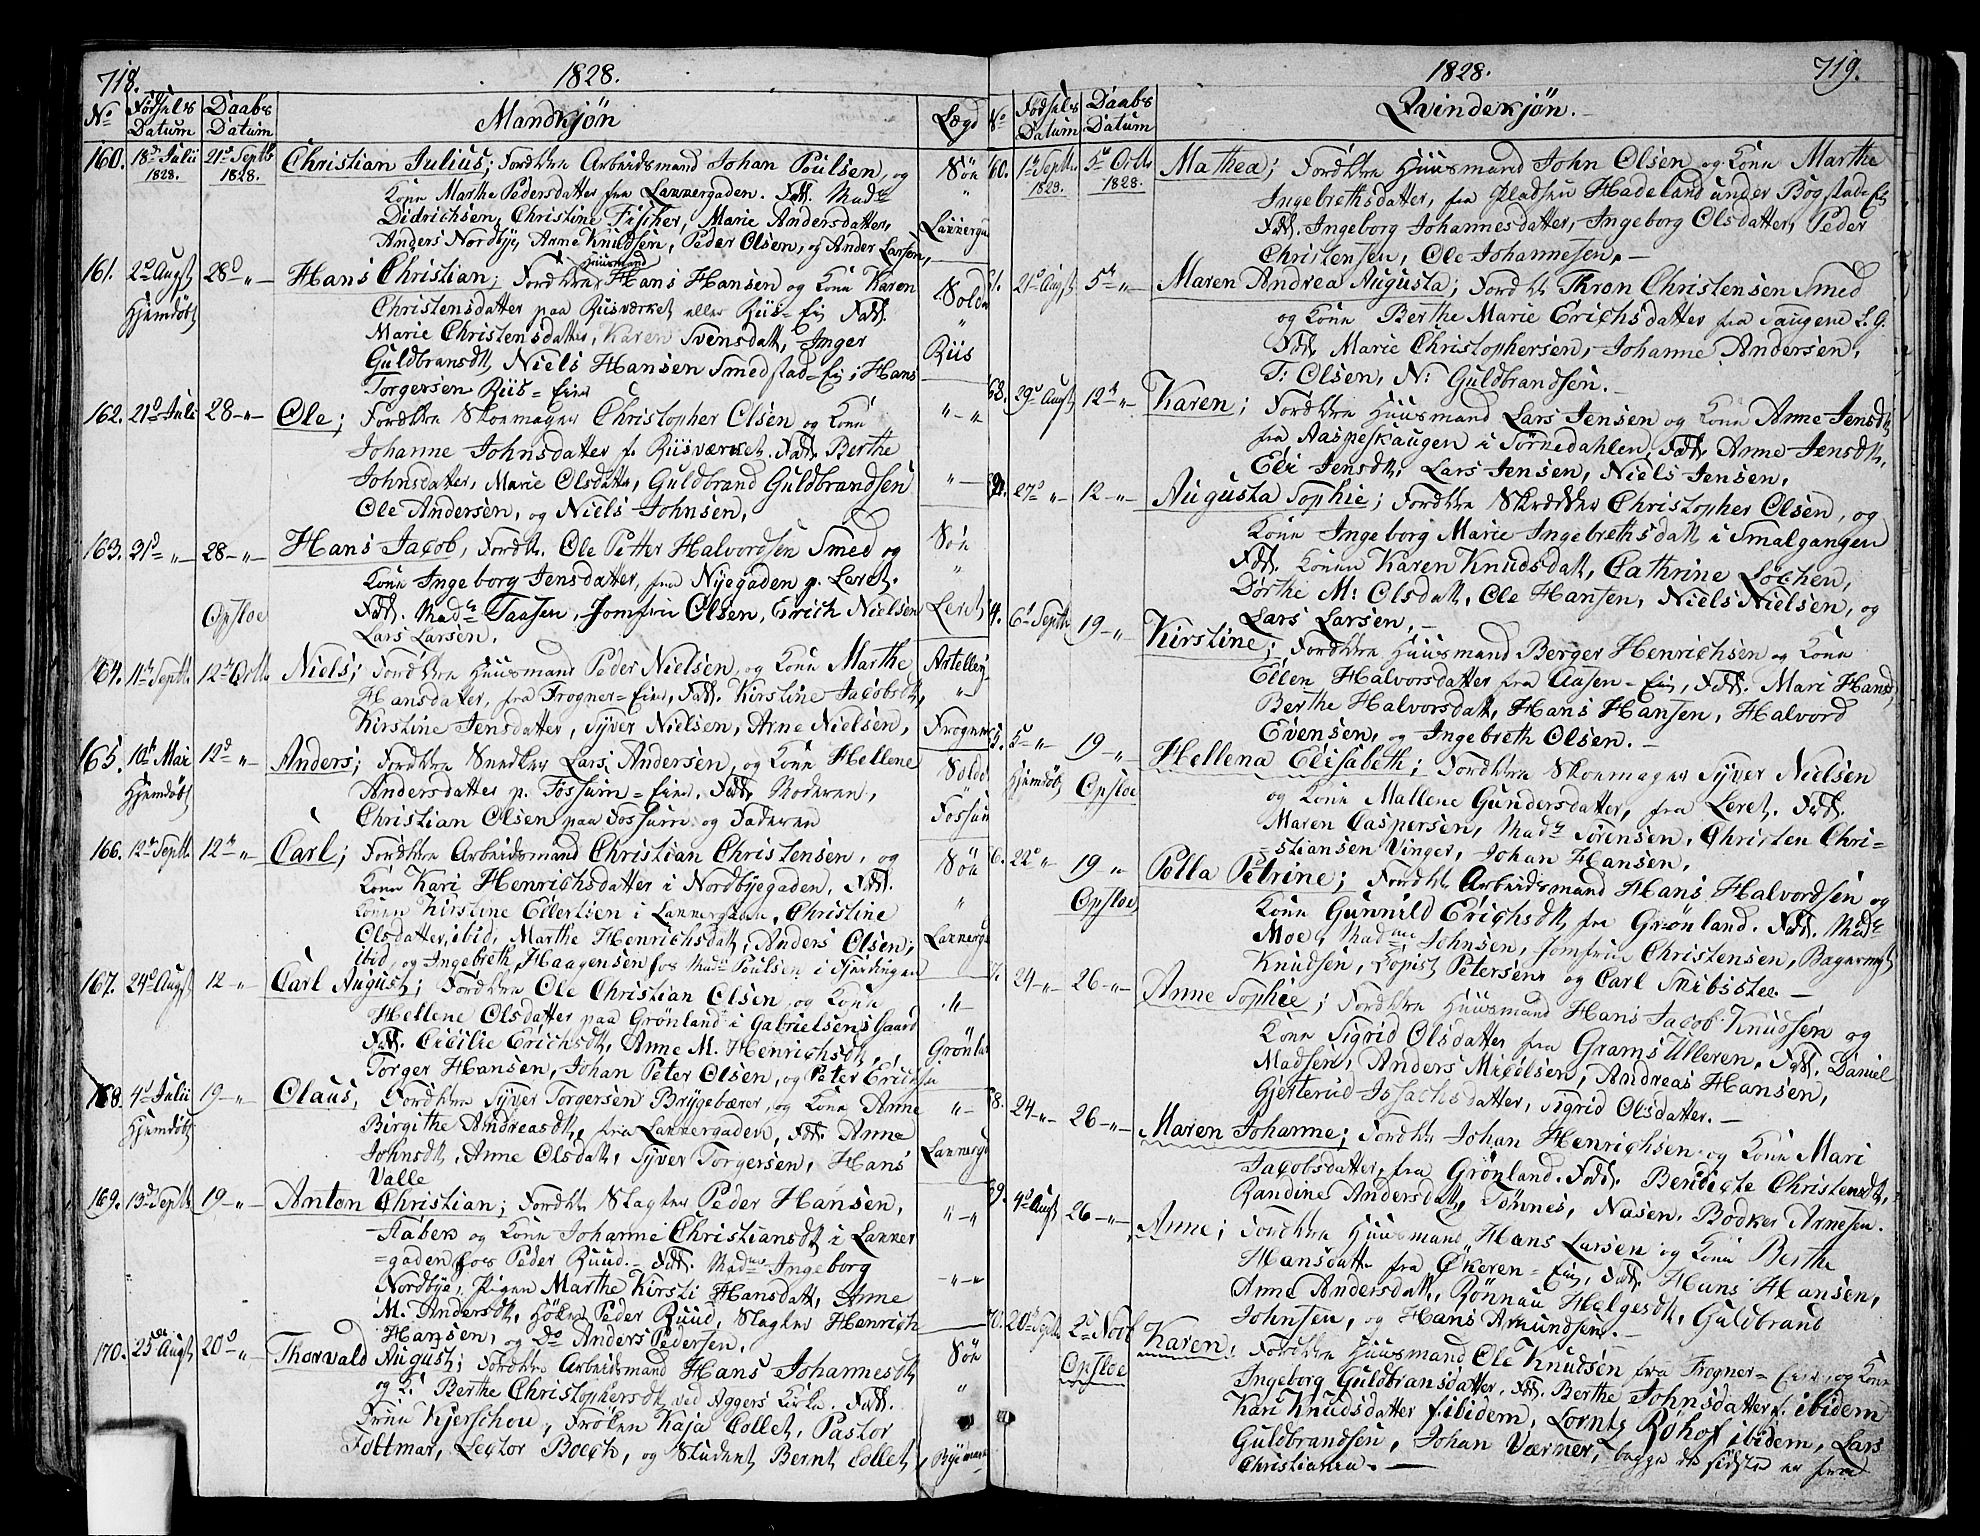 718.
1828.
No Fødsels Datum Daabs Datum Mandkjøn Lægd
160. 18de Julii 1828. 21de Septb 1828. Christian Julius; Forældre Arbeidsmand Johan Poulsen, og Søe
Kone Marthe Pedersdatter fra Lakkergaden. Fadd. Madme "
Didrichsen, Christine Fischer, Marie Andersdatter, Lakkerga
Anders Nordbye, Arne Knudsen, Peder Olsen, og Anders Larsen,
161. 2de Augst 28de " Hans Christian; Forældre Huusmand Hans Hansen og Kone Karen Solda
Hjemdøbt Christensdatter paa Riisværket eller Riis=Eie Fadd. "
Marie Christensdatter, Karen Svensdatt, Inger Riis
Guldbransdt, Niels Hansen Smedstad=Eie; Hans
Torgersen Riis=Eie
162. 21de Juli 28 " Ole; Forældre Skomager Christopher Olsen og Kone " "
Johanne Johnsdatter f. Riisværket. Fadd. Berthe
Johnsdatter, Marie Olsdatter, Guldbrand Guldbrandsen "
Ole Andersen, og Niels Johnsen,
163. 31de " 28 " Hans Jacob, Forældr. Ole Petter Halvordsen Smed og Søe
Kone Ingeborg Jensdatter, fra Nyegaden p. Leret. "
Opsloe Fadd. Madme Taasen, Jomfrue Olsen, Erich Nielsen Leret
Lars Larsen,
164. 11te Septb. 12te Octb. Niels; Forældre Huusmand Peder Nielsen, og Kone Marthe Artelleri
Hansdatter, fra Frogner=Eie, Fadd. Kirstine Jacobsdt, "
Kirstine Jensdatter, Syver Nielsen, Arne Nielsen, Frogner
165. 10de Mai 12de " Anders; Forældre Snedker Lars Andersen, og Kone Hellene Solda
Hjemdøbt Andersdatter p. Fossum=Eie, Fadd. Moderen, "
Christian Olsen paa Fossum og Faderen Fossum
166. 12te Septb. 12te " Carl; Forældre Arbeidsmand Christian Christensen, og Søe
Kone Kari Henrichsdatter i Nordbyegaden, Fadd.
Konen Kirstine Ellertsen i Lakkergaden, Christine "
Olsdatter, ibid, Marthe Henrichsdatt, Anders Olsen, Lakkerga
ibid, og Ingebreth Haagensen hos Madme Poulsen i Fjerdingen
167. 24de Augst 12 " Carl August; Forældre Ole Christian Olsen, og Kone "
Hellene Olsdatter paa Grønland i Gabrielsens Gaard
Fadd. Cicilie Erichsdt, Anne M. Henrichsdt, Grønla
Torger Hansen, Johan Peter Olsen, og Peter Erichsen
168. 4de Julii 19 " Claus, Forældre Syver Torgersen Brygebærer, og Kone Anne "
Hjemdøbt Birgithe Andreasdt, fra Lakkergaden, Fadd. Anne
Johnsdt, Anne Olsdatt, Syver Torgersen, Hans Lakkerga
Valle
169. 13de Septb 19 " Anton Christian; Forældre Slagter Peder Hansen, " "
Staber og Kone Johanne Christiansdt i Lakker
=gaden hos Peder Ruud. Fadd. Madme Ingeborg
Nordbye, Pigen Marthe Kirsti Hansdatt, Anne " "
M. Andersdt, Høker Peder Ruud, Slagter Henrich
Hansen, og Do Anders Pedersen,
170. 25de Augst 20de " Thorvald August; Forældre Arbeidsmand Hans Johannesdt Søe
og K. Berthe Christophersdt ved Aggers Kirke. Fadd. "
Frue Kjerschou, Frøken Kaja Collet, Pastor
Foltmar, Lector Boeck, og Student Bernt Collet, Byemark
719.
1828.
No Fødsels Datum Daabs Datum Qvindekjøn.
60. 1te Septb. 1828. 5te Octb 1828. Mathea; Forældre Huusmand John Olsen og Kone Marthe
Ingebrethsdatter, fra Pladsen Hadeland under Bogstad=Eie
Fadd. Ingeborg Johannesdatter, Ingeborg Olsdatter, Peder
Christensen, Ole Johannesen,
61. 21de Augst 5te " Maren Andrea Augusta; Forældre Thron Christensen Smed
og Kone Berthe Marie Erichsdatter fra Saugene L. G.
Fadd. Marie Christophersen, Johanne Andersen,
T: Olsen, N: Guldbrandsen.
68. 29de Augst 12te " Karen; Forældre Huusmand Lars Jensen og Kone Anne Jensdt
fra Aaspeskaugen i Sørkedahlen, Fadd. Anne Jensdt,
Eli Jensdt, Lars Jensen, Niels Jensen,
27de " 12 " Augusta Sophie; Forældre Skrædder Christopher Olsen, og
Kone Ingeborg Marie Ingebrethsdatt i Smalgangen
Fadd. Konen Karen Knudsdatt, Cathrine Løchen,
Dorthe M: Olsdatt, Ole Hansen, Niels Nielsen, og
Lars Larsen,
4. 6te Septb 19 " Kirstine; Forældre Huusmand Berger Henrichsen og Kone
Ellen Halvorsdatter fra Aasen=Eie, Fadd. Mari Hansd
Berthe Halvorsdatt, Hans Hansen, Halvord
Evensen, og Ingebreth Olsen.
5. 5te " 19 " Hellena Elisabeth; Forældre Skomager Syver Nielsen
Hjemdøbt Opsloe og Kone Mallene Gundersdatter, fra Leret. Fadd.
Maren Caspersen, Madme Sørensen, Christen Chri-
=stiansen Vinger, Johan Hansen,
6. 22de " 19 " Polla Petrine; Forældre Arbeidsmand Hans Halvordsen og
Opsloe Kone Gunnild Erichsdt fra Grønland. Fadd. Madme
Moe, Madme Johnsen, Jomfrue Christensen, Bagermst
Knudsen, Copist Petersen og Carl Skibsted.
7. 24 " 26 " Anne Sophie; Forældre Huusmand Hans Jacob Knudsen og
Kone Sigrid Olsdatter fra Grams Ulleren, Fadd. Daniel
Madsen, Anders Micolsen, Andreas Hansen,
Gjerterud Issachsdatter, Sigrid Olsdatter.
38. 24 " 26 " Maren Johanne; Forældre Johan Henrichsen og Kone Mari
Jacobsdatter, fra Grønland. Fadd. Bendigte Christensdt,
Randine Andersdatt, Tønnes, Nasen, Bødker Arnesen.
39. 4de Augst 26 " Anne; Forældre Huusmand Hans Larsen og Kone Berthe
Hansdatter fra Økeren=Eie, Fadd. Hans Hansen,
Anne Andersdatt, Rønnau Helgesdt, Guldbrand
Johnsen, og Hans Amundsen.
70. 20de Septb 2de Novb Karen; Forældre Huusmand Ole Knudsen fra Frogner=Eie, og Kone
Opsloe Ingeborg Guldbransdatter, Fadd. Berthe Johnsdatter f. ibidem
Kari Knudsdatter f. ibidem, Lornts Røhof ibidem, Lars
Guldbrandsen, Johan Værner, begge de sidste er fra
Christiania.